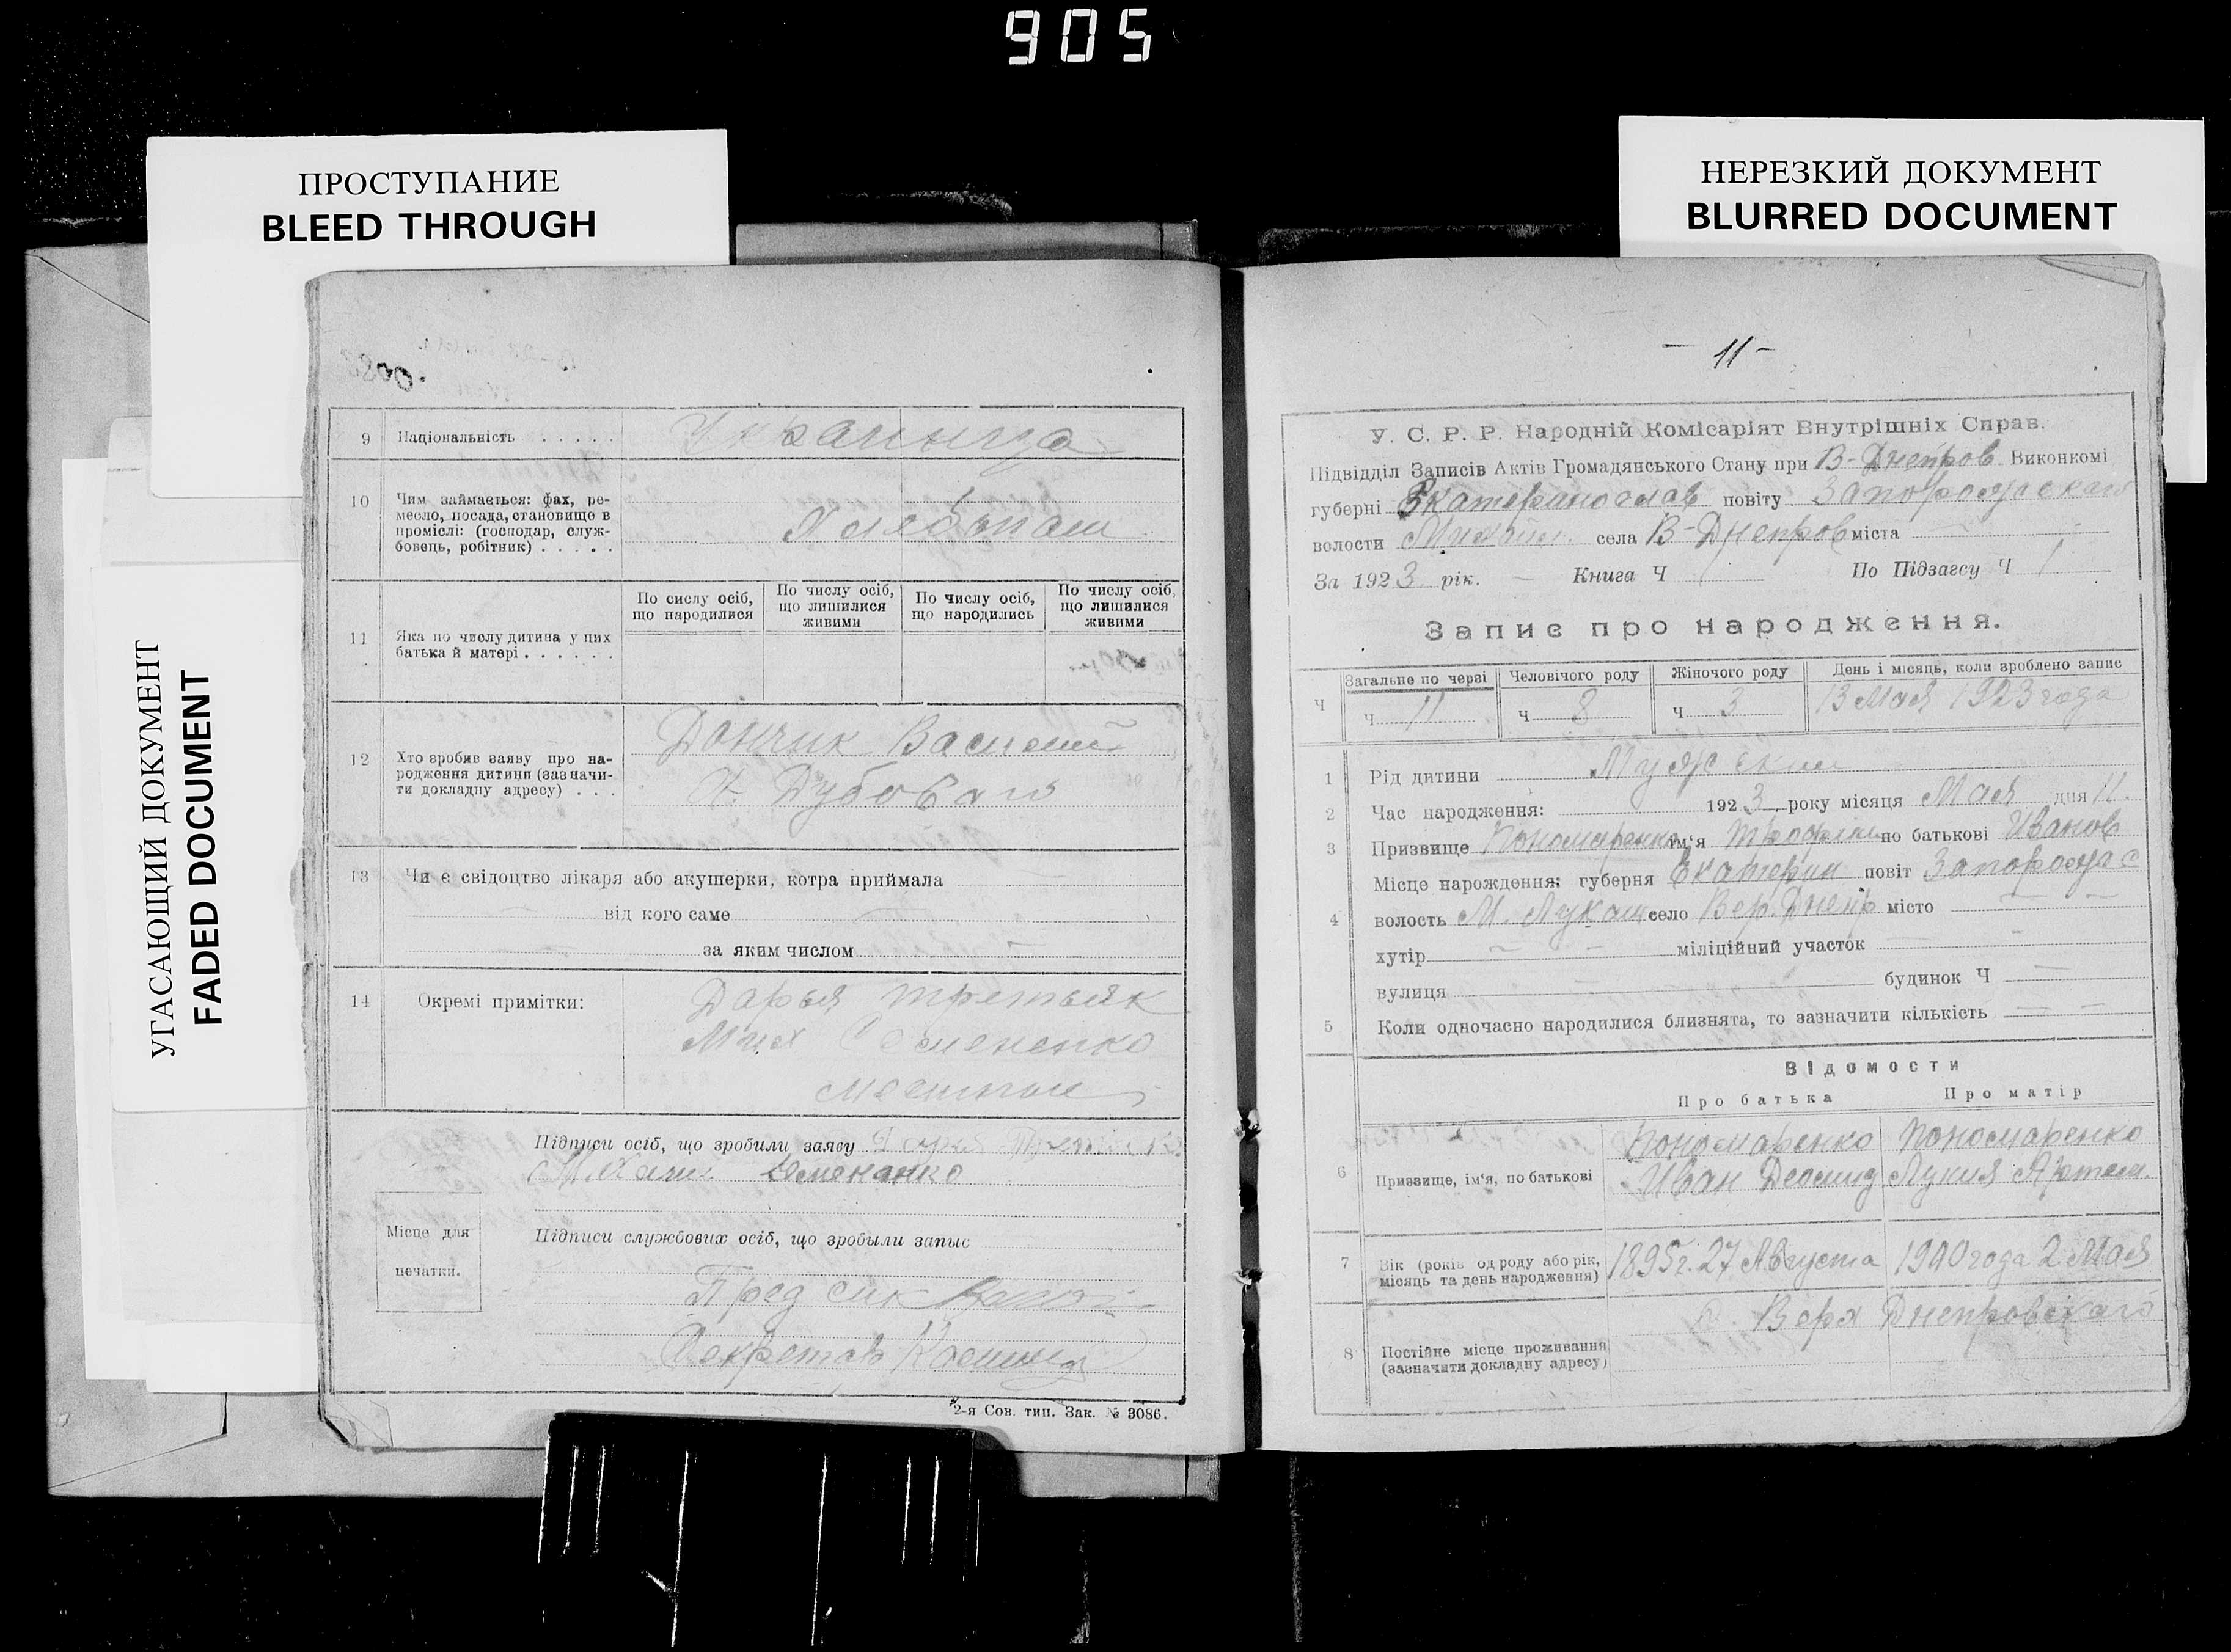 905
ПРОСТУПАНИЕ
BLEED THROUGH
НЕРЕЗКИЙ ДОКУМЕНТ
BLURRED DOCUMENT
УГАСАЮЩИЙ ДОКУМЕНТ
FADED DOCUMENT
9 Національність . . . . .
10 Чим займається: фах, ре-
месло, посада, становище в
проміслі: (господар, служ-
бовець, робітник) . . . . .
По сислу осіб, що народилися
По числу осіб, що лишилися живими
По числу осіб, що народились
По числу осіб, що лишилися живими
11 Яка по числу дитина у цих
батька й матері . . . . . .
12 Хто зробив заяву про на-
родження дитини (зазначи-
ти докладну адресу) . . .
Дончик Василий
Х. Дубоваго
13 Чи є свідоцтво лікаря або акушерки, котра приймала
від кого саме
за яким числом
14 Окремі примітки:
Дарья Третьяк
Мих Семененко
Підписи осіб, що зробили заяву Дарья Третьяк
Місце для
печатки.
Підписи службових осіб, що зробыли запыс
Секретарь
2-я Сов. тип. Зак. № 3086.
- 11 -
У. С. Р. Р. Народній Комісаріят Внутрішніх Справ.
Підвідділ Записів Актів Громадянського Стану при В-Днепров Виконкомі
губерні Екатеринослав повіту Запорожскаго
волости села В-Днепров міста
За 1923 рік. Книга Ч По Підзагсу Ч 1
Запис про народження.
Ч Загальне по черзі Человічого роду Жіночого роду День і місяць, коли зроблено запис
ч 11 ч 8 ч 3 13 Мая 1923 года
1 Рід дитини Мужским
2 Час народження: 1923 року місяця Мая дня 11.
3 Призвище Пономаренко ім'я Трофим по батькові Иванов
Місце нарождення: губерня Екатерин повіт Запорожс
4 волость М. Лукаш село Вер. Днепр місто
хутір міліційний участок
вулиця будинок Ч
5 Коли одночасно народилися близнята, то зазначити кількість
Відомости
Про батька Про матір
Пономаренко Пономаренко
6 Призвище, ім'я, по батькові Иван Деомид Лукия Артем.
7 Вік (років од роду або рік,
місяць та день народження) 1895 г. 27 Августа 1900 года 2 Мая
с. Верх Днепровскаго
8 Постійне місце проживання
(зазначити докладну адресу)